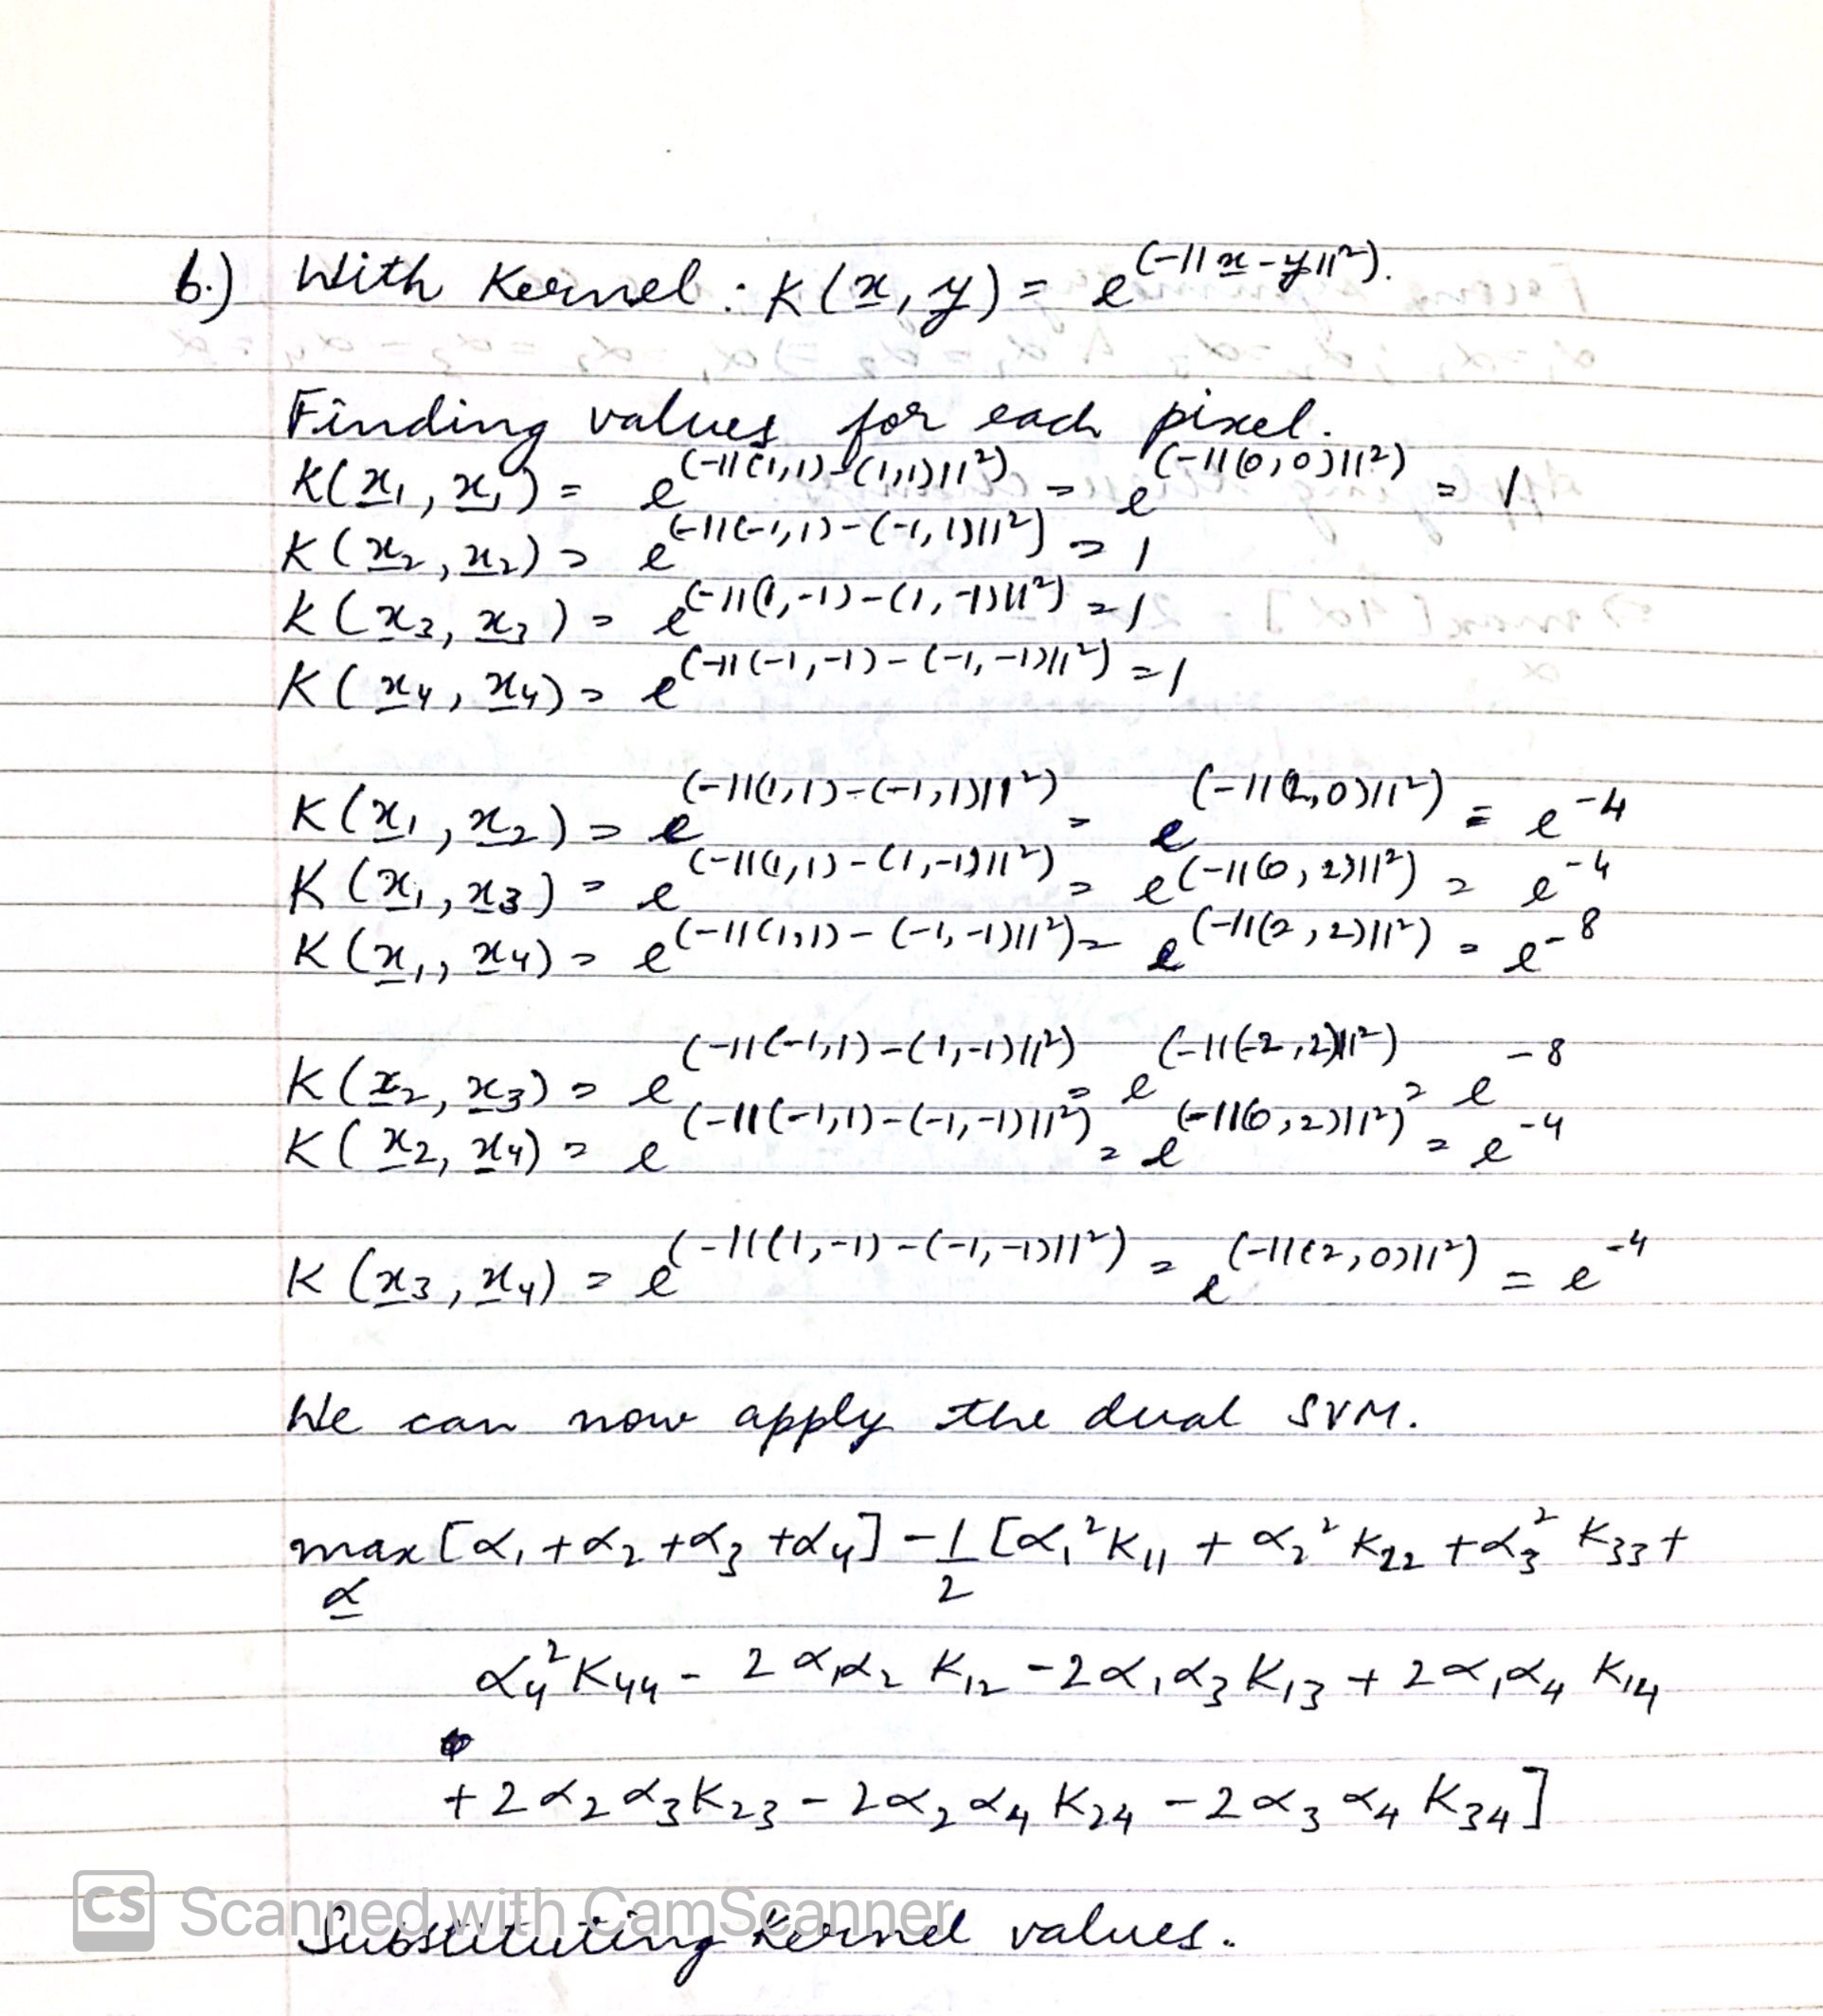 b.) With Kernel : K(x, y) = e^(-||x-y||²).
Finding values for each pixel.
K(x₁, x₁) = e^(-||(1,1)-(1,1)||²) = e^(-||(0,0)||²) = 1
K(x₂, x₂) = e^(-||(-1,1)-(-1,1)||²) = 1
K(x₃, x₃) = e^(-||(1,-1)-(1,-1)||²) = 1
K(x₄, x₄) = e^(-||(-1,-1)-(-1,-1)||²) = 1
K(x₁, x₂) = e^(-||(1,1)-(-1,1)||²) = e^(-||(2,0)||²) = e^-4
K(x₁, x₃) = e^(-||(1,1)-(1,-1)||²) = e^(-||(0,2)||²) = e^-4
K(x₁, x₄) = e^(-||(1,1)-(-1,-1)||²) = e^(-||(2,2)||²) = e^-8
K(x₂, x₃) = e^(-||(-1,1)-(1,-1)||²) = e^(-||(-2,2)||²) = e^-8
K(x₂, x₄) = e^(-||(-1,1)-(-1,-1)||²) = e^(-||(0,2)||²) = e^-4
K(x₃, x₄) = e^(-||(1,-1)-(-1,-1)||²) = e^(-||(2,0)||²) = e^-4
We can now apply the dual SVM.
max [α₁+α₂+α₃+α₄] - 1/2 [α₁²K₁₁ + α₂²K₂₂ + α₃²K₃₃ +
α
α₄²K₄₄ - 2α₁α₂ K₁₂ - 2α₁α₃K₁₃ + 2α₁α₄ K₁₄
+ 2α₂α₃K₂₃ - 2α₂α₄ K₂₄ - 2α₃α₄ K₃₄]
CS Scanned with CamScanner
Substituting kernel values.